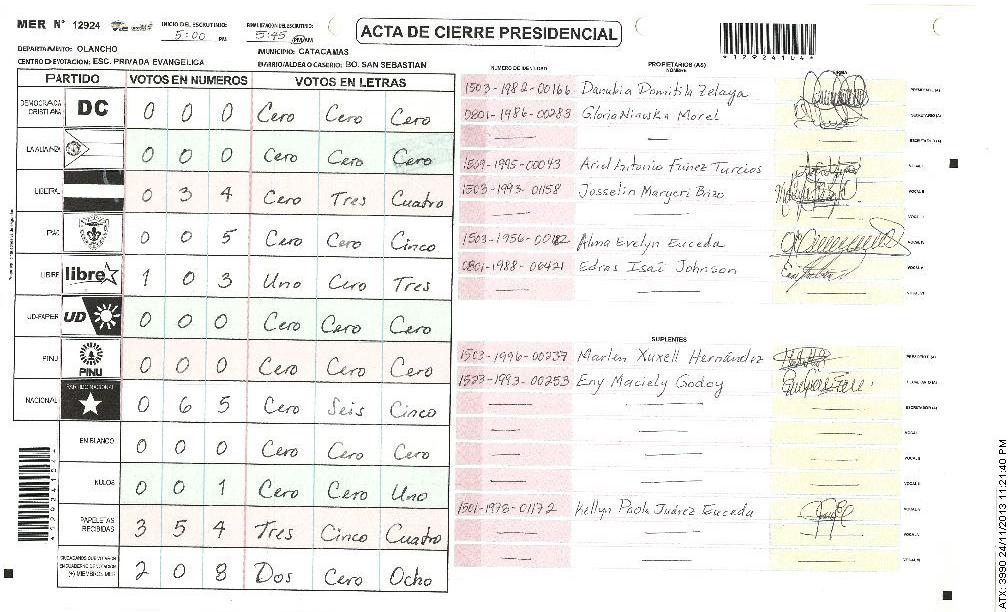 MER N° 12924
INICIO DEL ESCRUTINIO: 5:00 PM
FINALIZACION DEL ESCRUTINIO: 5:45 PM/AM
ACTA DE CIERRE PRESIDENCIAL
*12924104*
DEPARTAMENTO: OLANCHO
MUNICIPIO: CATACAMAS
CENTRO DE VOTACION: ESC. PRIVADA EVANGELICA
BARRIO/ALDEA O CASERIO: BO. SAN SEBASTIAN
PARTIDO VOTOS EN NUMEROS VOTOS EN LETRAS
DEMOCRACIA CRISTIANA DC 0 0 0 Cero Cero Cero
LA ALIANZA 0 0 0 Cero Cero Cero
LIBERAL 0 3 4 Cero Tres Cuatro
PAC 0 0 5 Cero Cero Cinco
LIBRE libre 1 0 3 Uno Cero Tres
UD-FAPER UD 0 0 0 Cero Cero Cero
PINU PINU 0 0 0 Cero Cero Cero
NACIONAL PARTIDO NACIONAL 0 6 5 Cero Seis Cinco
EN BLANCO 0 0 0 Cero Cero Cero
NULOS 0 0 1 Cero Cero Uno
PAPELETAS RECIBIDAS 3 5 4 Tres Cinco Cuatro
CIUDADANOS QUE VOTARON EN CUADERNO DE VOTACION (+) MIEMBROS MER 2 0 8 Dos Cero Ocho
PROPIETARIOS (AS)
NUMERO DE IDENTIDAD NOMBRE FIRMA
1503-1982-00166 Danubia Domitila Zelaya PRESIDENTE (A)
0801-1986-00283 Gloria Niuska Morel SECRETARIO (A)
SECRETARIO (A)
1509-1995-00043 Ariel Antonio Fúnez Turcios VOCAL I
1503-1993-01158 Josselin Margeri Brizo VOCAL II
1503-1956-00122 Alma Evelyn Euceda VOCAL IV
0801-1988-06421 Edras Isaí Johnson VOCAL V
VOCAL VI
SUPLENTES
1503-1996-00237 Marlen Xuxell Hernández PRESIDENTE (A)
1523-1993-00253 Eny Maciely Godoy SECRETARIO (A)
SECRETARIO (A)
VOCAL I
VOCAL II
1501-1978-01172 Kellyn Paola Juárez Euceda
VOCAL V
VOCAL VI
ATX: 3990 24/11/2013 11:21:40 PM